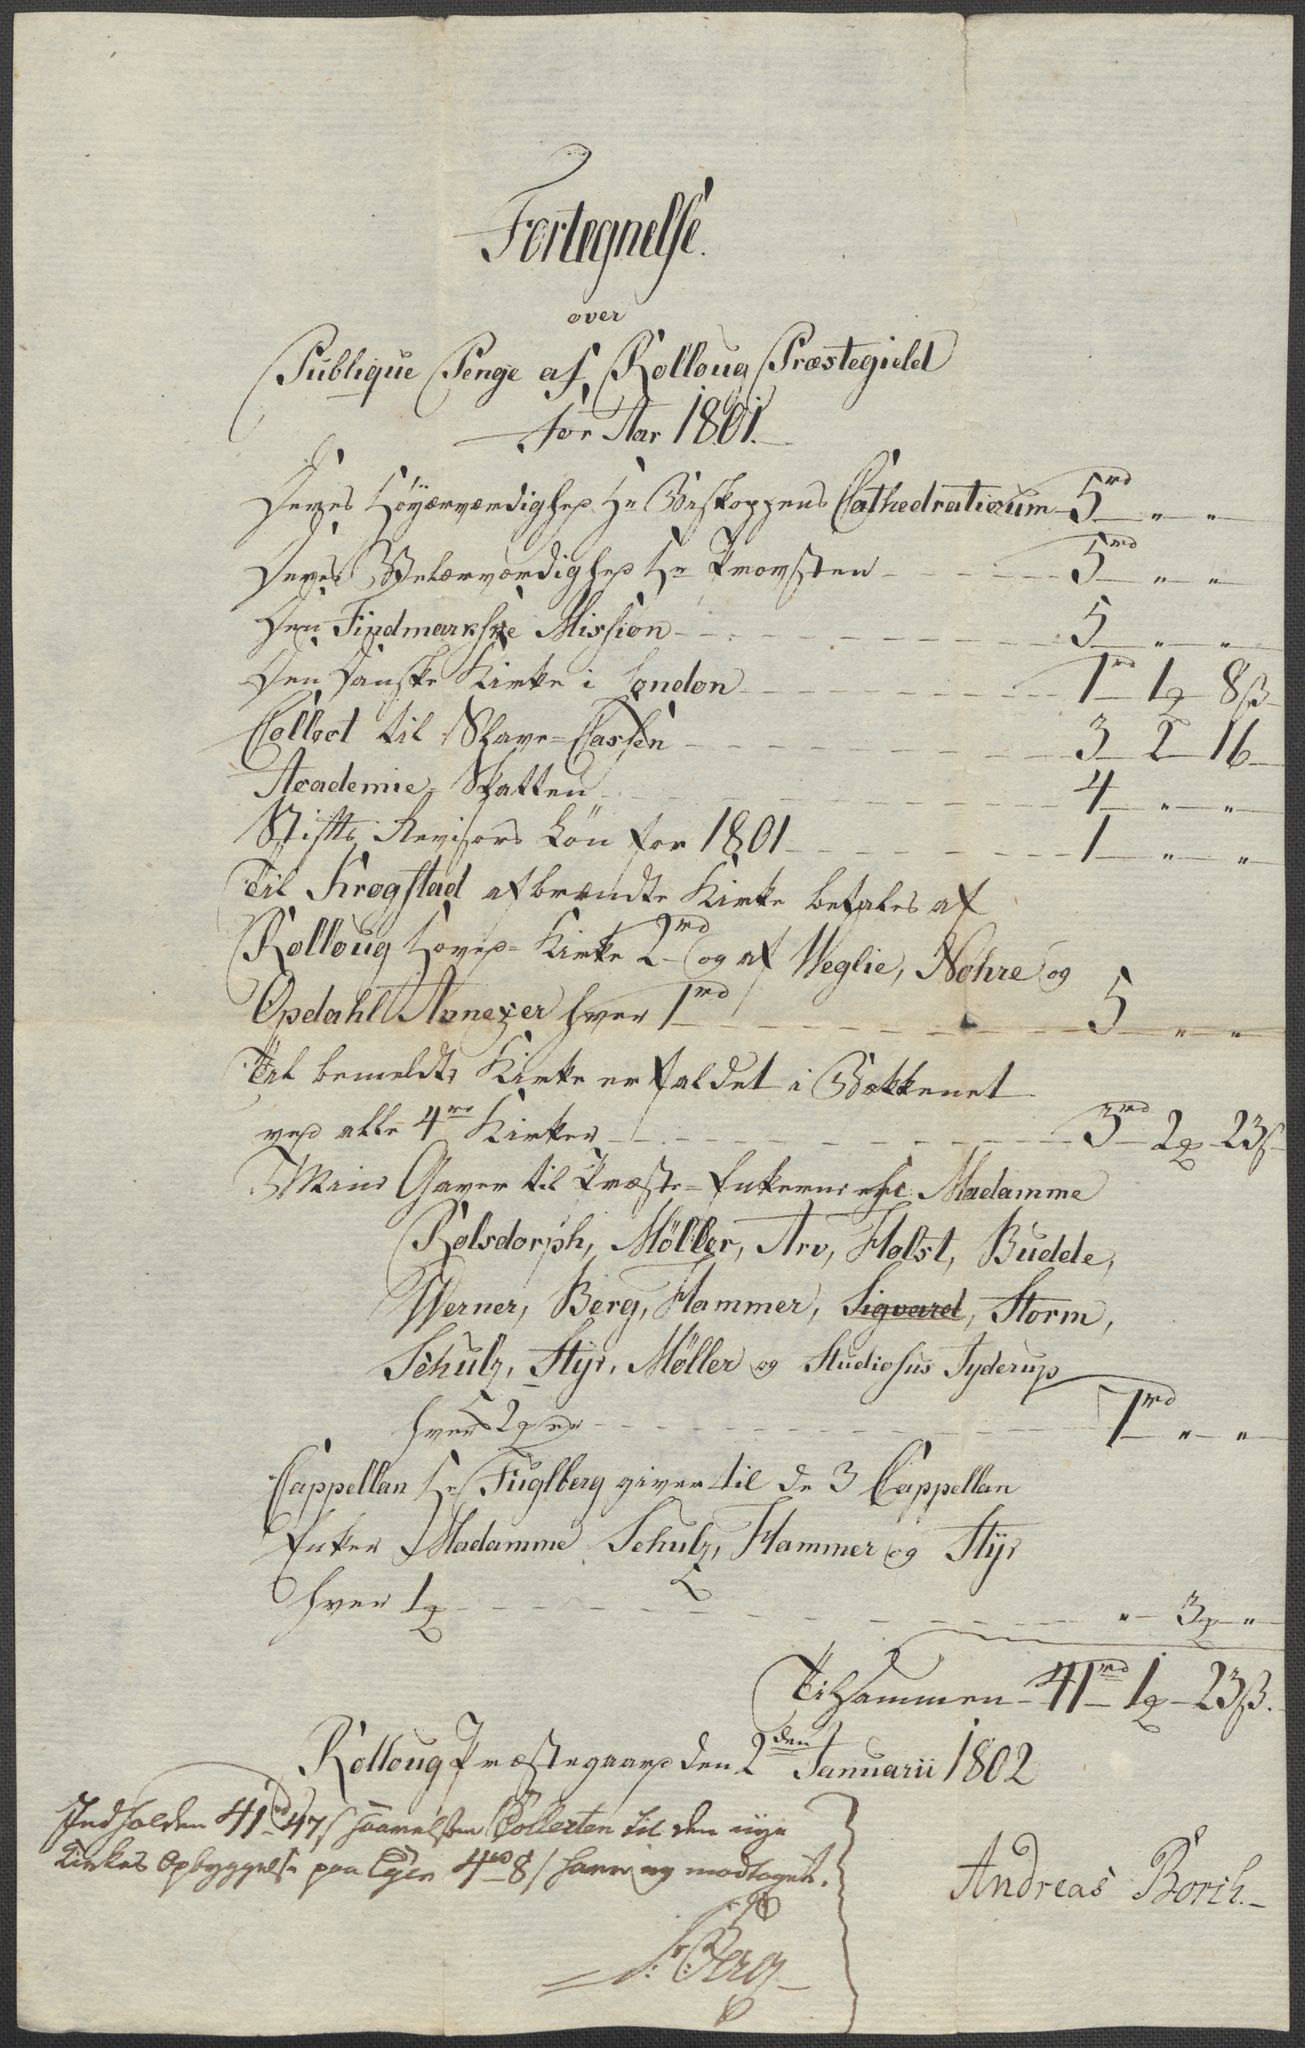 Fortegnelse.
over
Publique Penge af Rolloug Præstegield
for Aar 1801.
Deres Høyærværdighed Hr Biskoppens Cathedraticum 5rd " "
Deres Velærværdighed Hr Provsten 5rd " "
Den Findmarkske Mission 5 " "
Den Danske Kirke i London 1rd 1 8ß
Collect til Slave-Cassen 3 2 16
Academie Skatten 4 " "
Stifts Revisors Løn for 1801 1 " "
Til Krogstad afbrændte Kirke betales af
Rolloug Hoved-Kirke 2rd og af Veglie, Nohre og
Opdahl Annexer hver 1rd 5 " "
Til bemeldte Kirke er faldet i Bækkenet
ved alle 4re Kirker 3rd 2 23ß
Mine Gaver til Præste-Enkerne Madamme
Rolsdorph, Møller, Arv, Holst, Budde,
Werner, Berg, Hammer, Sigvard, Storm,
Schulz, Styr, Møller og Studiosus Tyderup
hver 2 er 7rd " "
Cappellan Hr Fuglberg giver til de 3 Cappellan
Enker Madamme Schulz, Hammer og Styr
hver 1 " 3 "
Tilsammen 41rd 1 23ß.
Rolloug Præstegaard den 2den Januarii 1802
Andreas Borch.
Indholden 41rd 47ß saavelsom Collecten til den nye
Kirkes Opbyggelse paa Egen 4rd 8ß haver ieg modtaget.
Berg